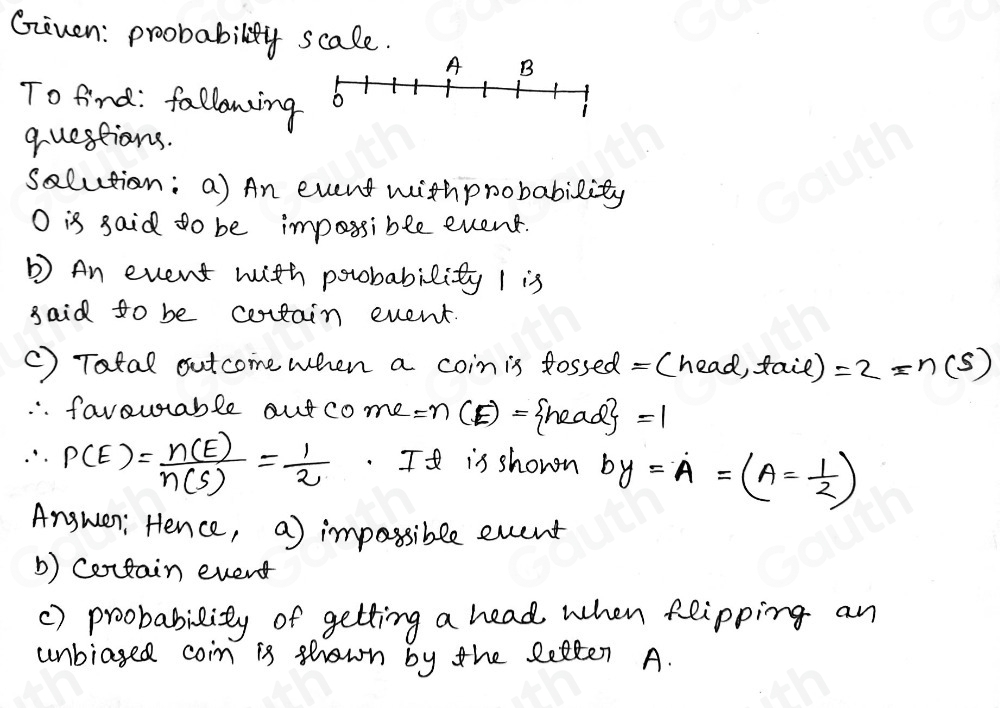 Given: probability scale.
A B
0 1
To find: following
questions.
Solution: a) An event with probability
0 is said to be impossible event.
b) An event with probability 1 is
said to be certain event.
c) Total outcome when a coin is tossed = (head, tail) = 2 = n(S)
∴ favourable outcome = n(E) = {head} = 1
∴ P(E) = n(E)/n(S) = 1/2 . It is shown by = A = (A = 1/2)
Answer; Hence, a) impossible event
b) Certain event
c) probability of getting a head when flipping an
unbiased coin is shown by the letter A.
Gauth